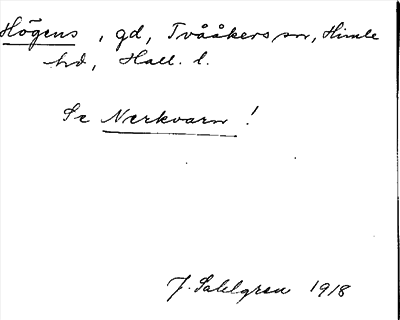 Högens, gd, Tvååkers sn, Himle
hd, Hall. l.
Se Nerkvarn!
J. Sahlgren 1918